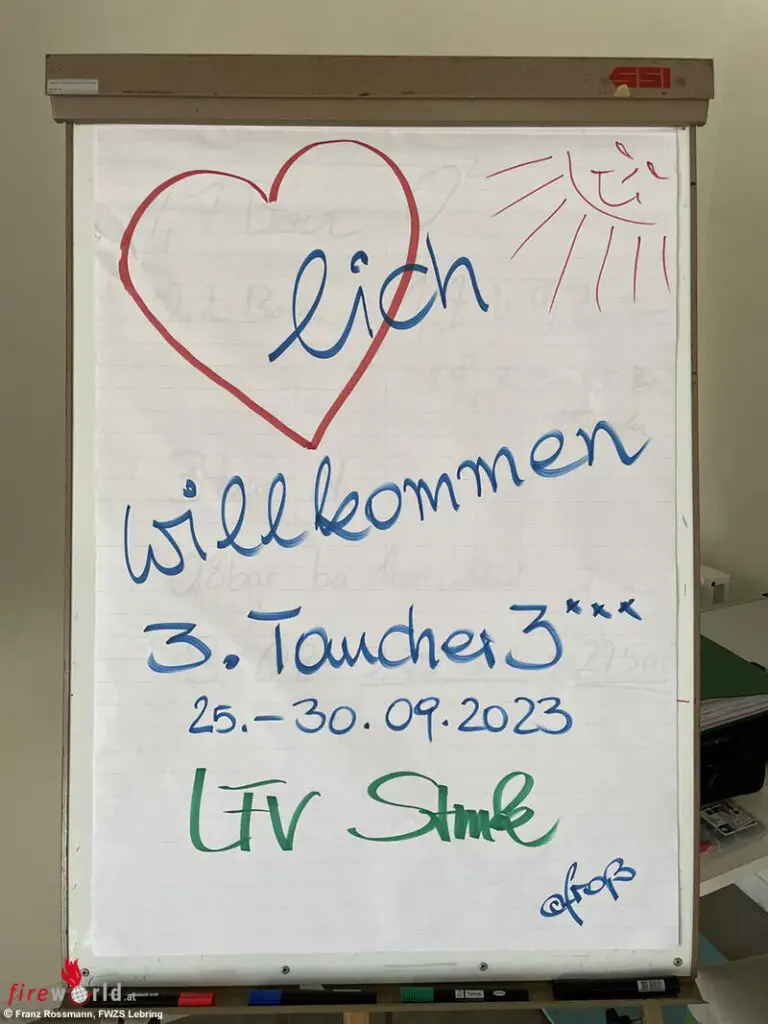 SSI
lich
willkommen
3. Taucher 3***
25.-30.09.2023
LFV Stmk
©froß
fireworld.at
© Franz Rossmann, FWZS Lebring